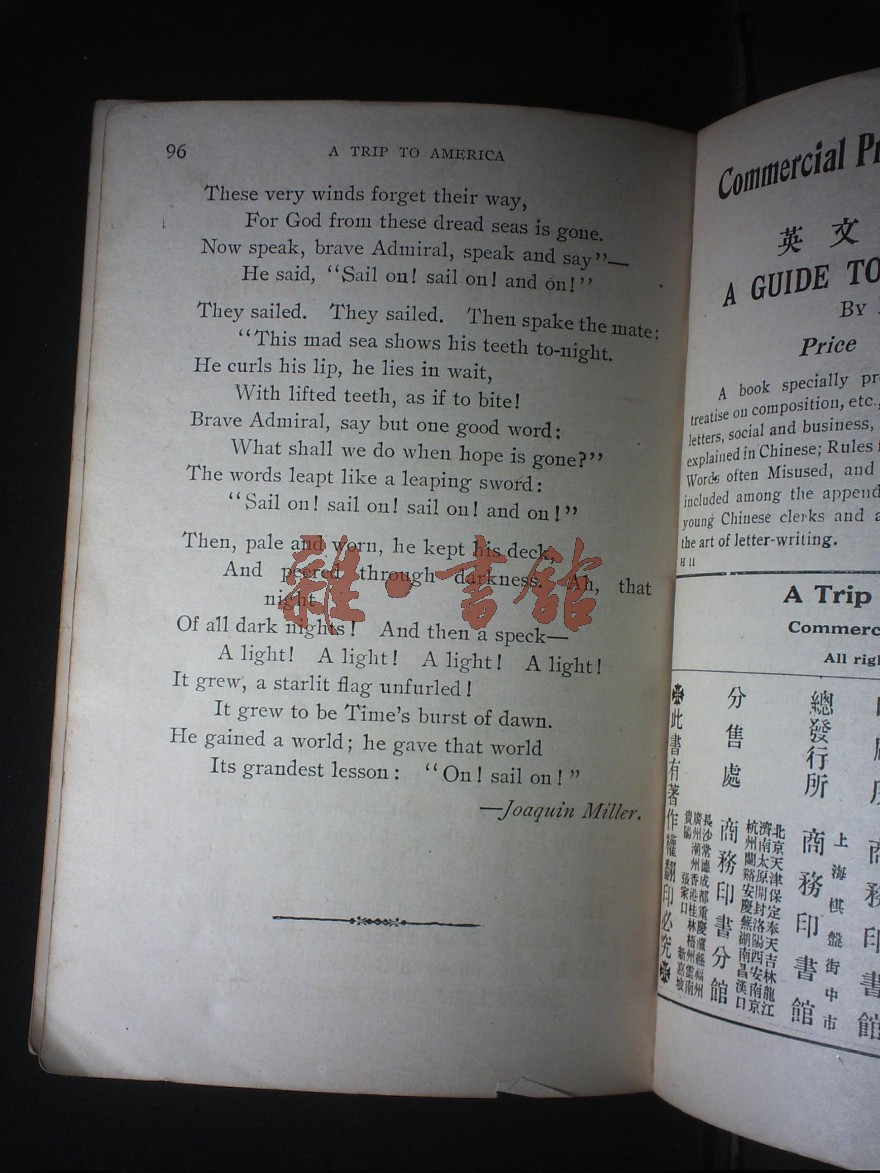 96 A TRIP TO AMERICA
These very winds forget their way,
For God from these dread seas is gone.
Now speak, brave Admiral, speak and say"—
He said, "Sail on! sail on! and on!"
They sailed. They sailed. Then spake the mate:
"This mad sea shows his teeth to-night.
He curls his lip, he lies in wait,
With lifted teeth, as if to bite!
Brave Admiral, say but one good word:
What shall we do when hope is gone?"
The words leapt like a leaping sword:
"Sail on! sail on! sail on! and on!"
Then, pale and worn, he kept his deck,
And peered through darkness. Ah, that
night
Of all dark nights! And then a speck—
A light! A light! A light! A light!
It grew, a starlit flag unfurled!
It grew to be Time's burst of dawn.
He gained a world; he gave that world
Its grandest lesson: "On! sail on!"
—Joaquin Miller.
雜·書館
Commercial
英文
A GUIDE TO
BY
Price
A book specially
treatise on composition, etc.,
letters, social and business,
explained in Chinese; Rules
Words often Misused, and
included among the
young Chinese clerks and
the art of letter-writing.
H 11
A Trip
All
總發行所 上海棋盤街中市 商務印書館
分售處 商務印書分館
北京天津保定奉天吉林龍江
濟南太原開封洛陽西安南京
杭州蘭谿安慶蕪湖南昌漢口
長沙常德成都重慶瀘縣福州
廣州潮州香港桂林梧州雲南
貴陽 張家口 新嘉坡
此書有著作權翻印必究